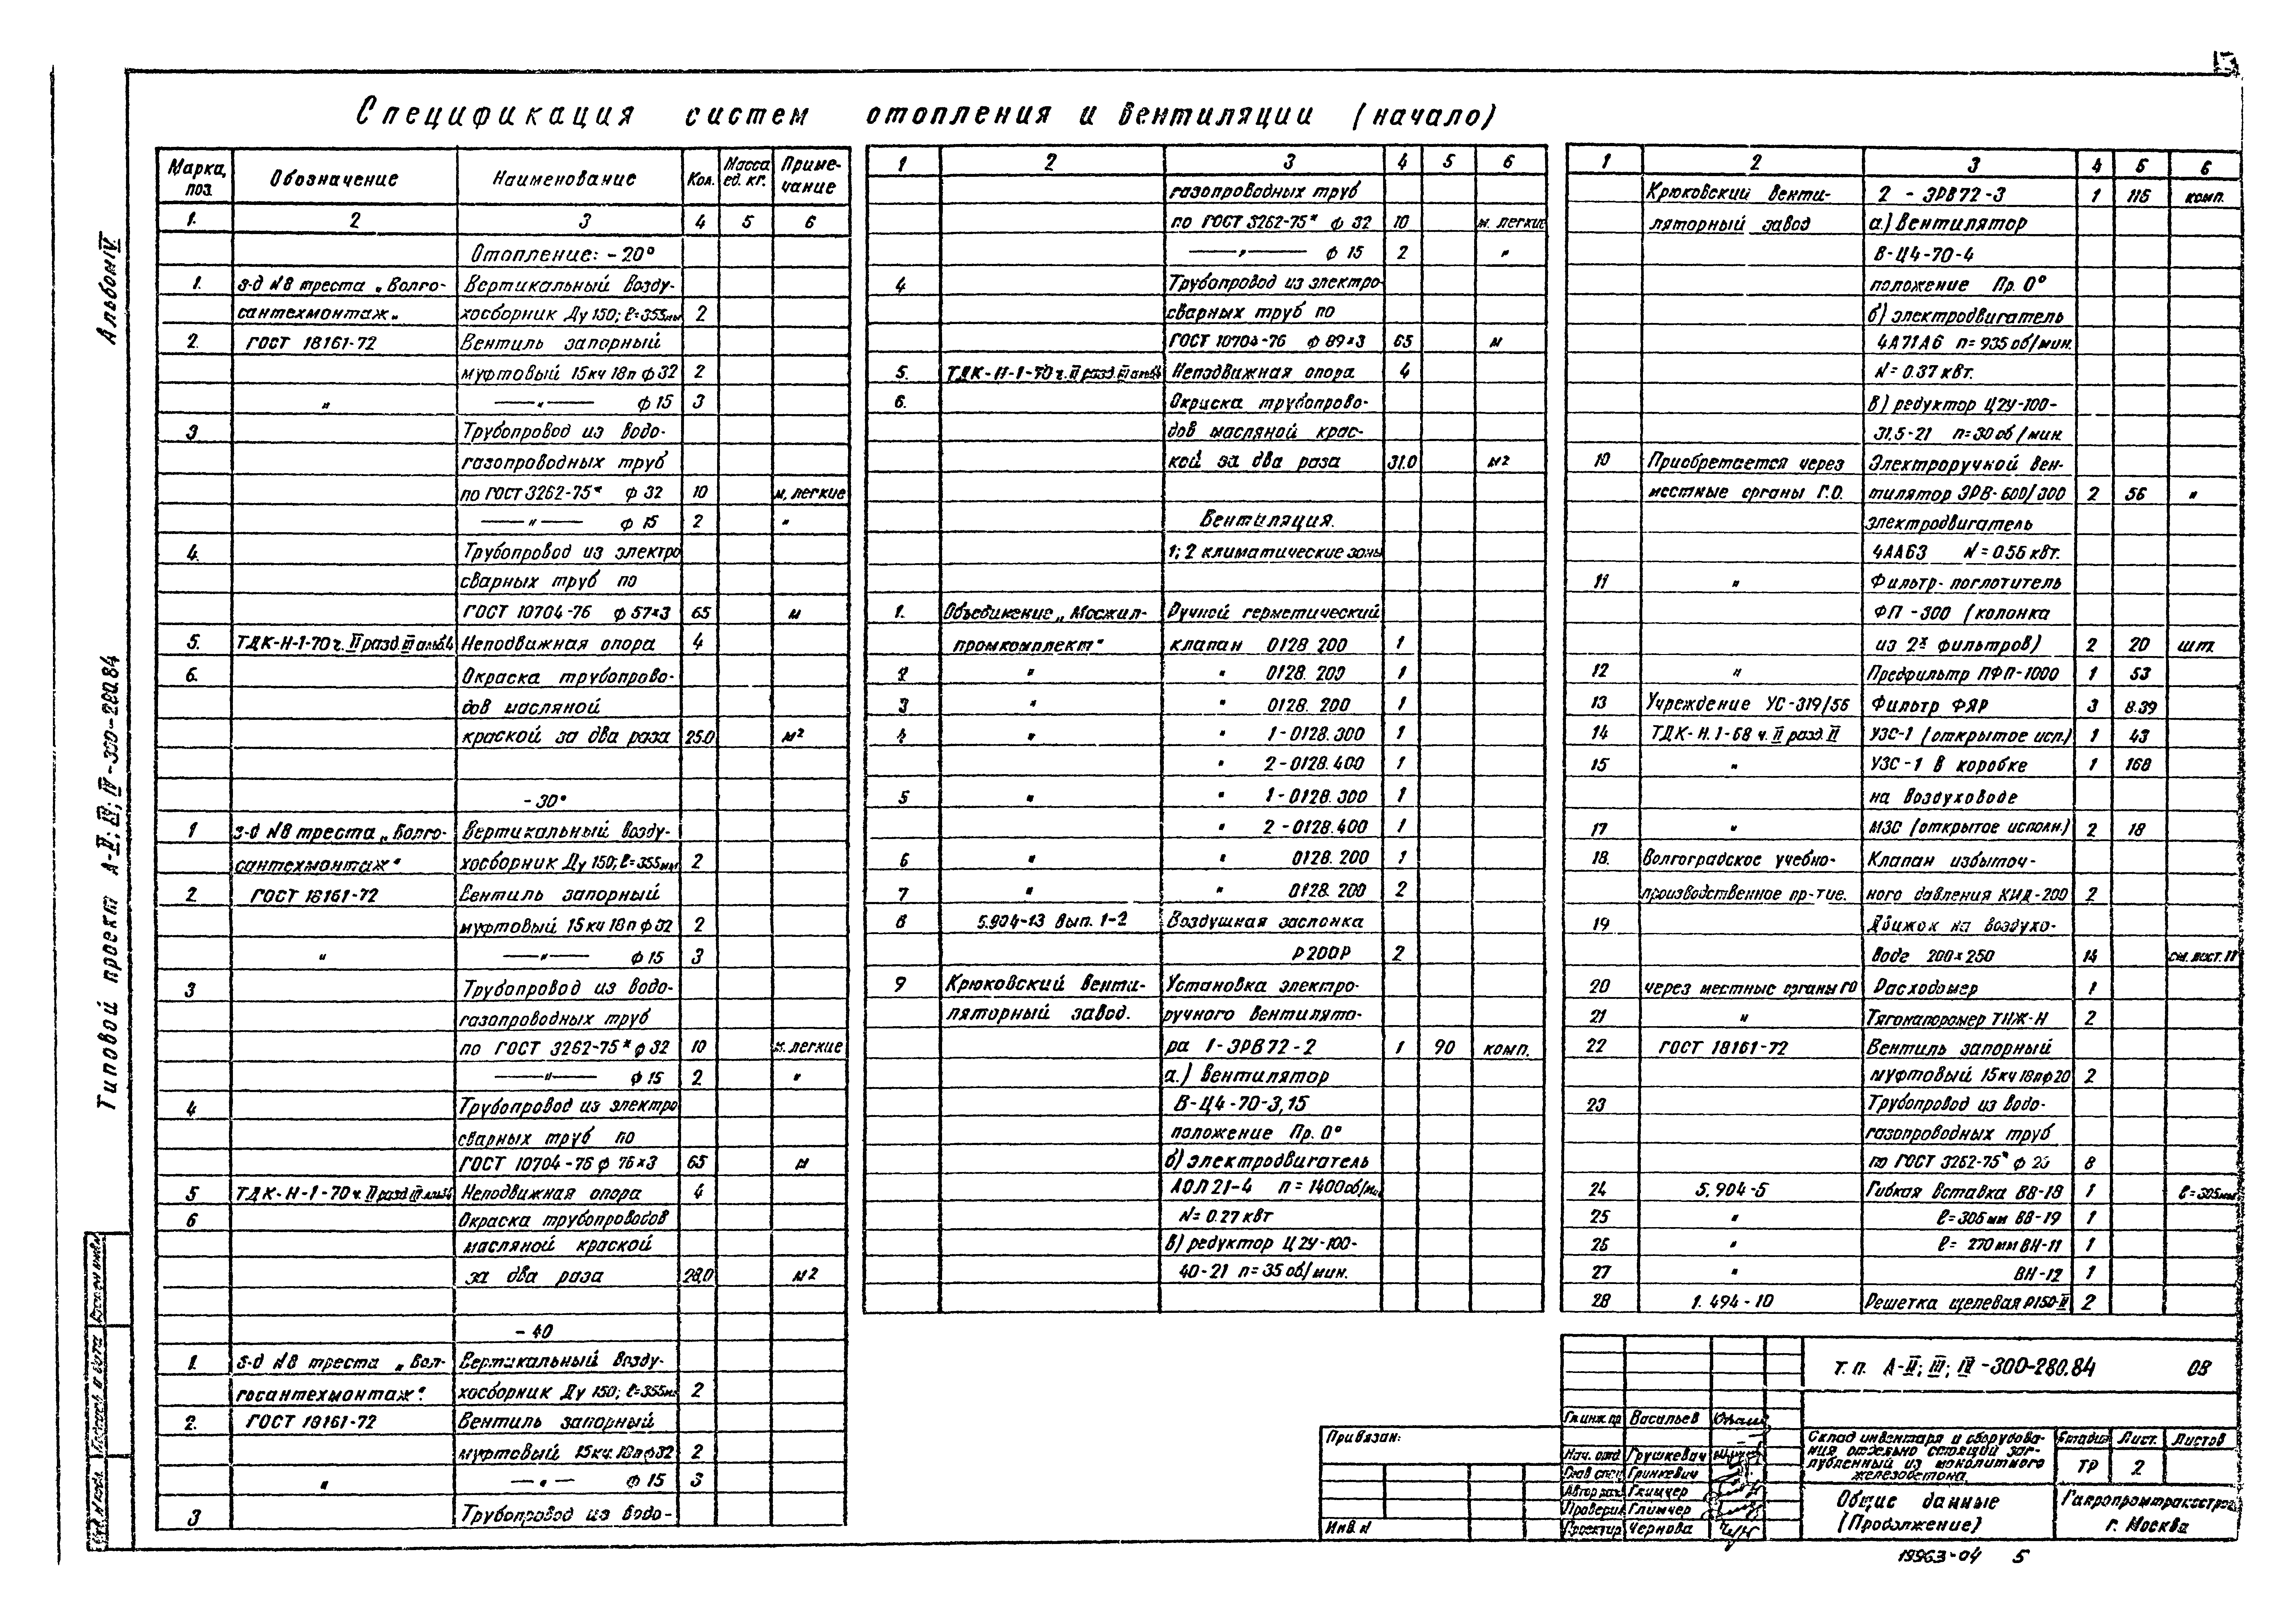 Спецификация систем отопления и вентиляции (начало)
Альбом IV
Типовой проект А-II; III; IV-300-280.84
Марка, поз. | Обозначение | Наименование | Кол. | Масса ед. кг. | Приме-чание
1. | 2 | 3 | 4 | 5 | 6
Отопление: -20°
1. | з-д №8 треста „Волго- | Вертикальный возду-
сантехмонтаж" | хосборник Ду 150; ℓ=355мм | 2
2. | ГОСТ 18161-72 | Вентиль запорный
муфтовый 15кч 18п ф 32 | 2
" | —"— ф 15 | 3
3 | Трубопровод из водо-
газопроводных труб
по ГОСТ 3262-75* ф 32 | 10 | м, легкие
—"— ф 15 | 2 | "
4. | Трубопровод из электро
сварных труб по
ГОСТ 10704-76 ф 57×3 | 65 | м
5. | ТДК-Н-1-70 ч. II разд. III альб.4 | Неподвижная опора | 4
6. | Окраска трубопрово-
дов масляной
краской за два раза | 25.0 | м²
-30°
1 | з-д №8 треста „Волго- | Вертикальный возду-
сантехмонтаж" | хосборник Ду 150; ℓ=355мм | 2
2 | ГОСТ 18161-72 | Вентиль запорный
муфтовый 15кч 18п ф 32 | 2
" | —"— ф 15 | 3
3 | Трубопровод из водо-
газопроводных труб
по ГОСТ 3262-75* ф 32 | 10 | м. легкие
—"— ф 15 | 2 | "
4 | Трубопровод из электро
сварных труб по
ГОСТ 10704-76 ф 76×3 | 65 | м
5 | ТДК-Н-1-70 ч. II разд III альб4 | Неподвижная опора | 4
6 | Окраска трубопроводов
масляной краской
за два раза | 28.0 | м2
-40
1. | з-д №8 треста „Вол- | Вертикальный возду-
госантехмонтаж". | хосборник Ду 150; ℓ=355мм | 2
2. | ГОСТ 18161-72 | Вентиль запорный
муфтовый 15кч. 18п ф 32 | 2
" | —"— ф 15 | 3
3 | Трубопровод из водо-
1 | 2 | 3 | 4 | 5 | 6
газопроводных труб
по ГОСТ 3262-75* ф 32 | 10 | м. легкие
—"— ф 15 | 2 | "
4 | Трубопровод из электро-
сварных труб по
ГОСТ 10704-76 ф 89×3 | 65 | м
5. | ТДК-Н-1-70 ч. II разд. III альб4 | Неподвижная опора | 4
6. | Окраска трубопрово-
дов масляной крас-
кой за два раза | 31.0 | м2
Вентиляция.
1; 2 климатические зоны
1. | Объединение „Мосжил- | Ручной герметический
промкомплект" | клапан 0128 200 | 1
2 | " | " 0128. 200 | 1
3 | " | " 0128. 200 | 1
4 | " | " 1-0128.300 | 1
" 2-0128.400 | 1
5 | " | " 1-0128.300 | 1
" 2-0128.400 | 1
6 | " | " 0128. 200 | 1
7 | " | " 0128. 200 | 2
8 | 5.904-13 вып. 1-2 | Воздушная заслонка
Р200Р | 2
9 | Крюковский венти- | Установка электро-
ляторный завод. | ручного вентилято-
ра 1-ЭРВ 72-2 | 1 | 90 | комп.
а.) вентилятор
В-Ц4-70-3,15
положение Пр. 0°
б) электродвигатель
АОЛ 21-4 n=1400 об/мин
N=0.27 квт
в) редуктор Ц2У-100-
40-21 n=35 об/мин.
1 | 2 | 3 | 4 | 5 | 6
Крюковский венти- | 2-ЭРВ 72-3 | 1 | 115 | комп.
ляторный завод | а.) Вентилятор
В-Ц4-70-4
положение Пр. 0°
б) электродвигатель
4А71А6 n=935 об/мин.
N=0.37 квт.
в) редуктор Ц2У-100-
31,5-21 n=30 об/мин
10 | Приобретается через | Электроручной вен-
местные органы Г.О. | тилятор ЭРВ-600/300 | 2 | 56 | "
электродвигатель
4АА63 N=0.56 квт.
11 | " | Фильтр-поглотитель
ФП-300 (колонка
из 2х фильтров) | 2 | 20 | шт.
12 | " | Предфильтр ПФП-1000 | 1 | 53
13 | Учреждение УС-319/56 | Фильтр ФЯР | 3 | 8.39
14 | ТДК-Н.1-68 ч. II разд. II | УЗС-1 (открытое исп.) | 1 | 43
15 | " | УЗС-1 в коробке | 1 | 168
на воздуховоде
17 | " | МЗС (открытое исполн.) | 2 | 18
18. | Волгоградское учебно- | Клапан избыточ-
производственное пр-тие. | ного давления КИД-200 | 2
19 | Движок на воздухо-
воде 200×250 | 14 | см. лист. 11
20 | через местные органы ГО | Расходомер | 1
21 | " | Тягонапоромер ТНЖ-Н | 2
22 | ГОСТ 18161-72 | Вентиль запорный
муфтовый 15кч 18п ф 20 | 2
23 | Трубопровод из водо-
газопроводных труб
по ГОСТ 3262-75* ф 20 | 8
24 | 5.904-5 | Гибкая вставка ВВ-18 | 1 | ℓ=305мм
25 | " | ℓ=305мм ВВ-19 | 1
26 | " | ℓ=270мм ВН-11 | 1
27 | " | ВН-12 | 1
28 | 1.494-10 | Решетка щелевая Р150-II | 2
Привязан:
Инв. №
Гл.инж.пр | Васильев
Нач. отд. | Грушкевич
Глав спец | Гринкевич
Автор раз. | Глимчер
Проверил | Глимчер
Проектир. | Чернова
т. п. А-II; III; IV-300-280.84 ОВ
Склад инвентаря и оборудова-
ния отдельно стоящий заг-
лубленный из монолитного
железобетона
Стадия | Лист. | Листов
ТР | 2
Общие данные
(Продолжение)
Гипропромтрансстрой
г. Москва
19963-04 5